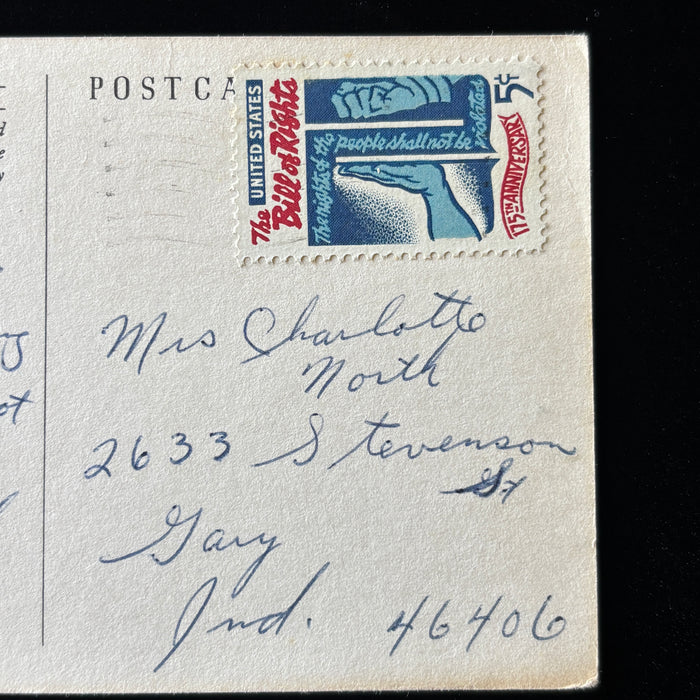 POSTCA
UNITED STATES
The Bill of Rights
The rights of the people shall not be violated
5c
175TH ANNIVERSARY
Mrs Charlotte
North
2633 Stevenson
St
Gary
Ind. 46406